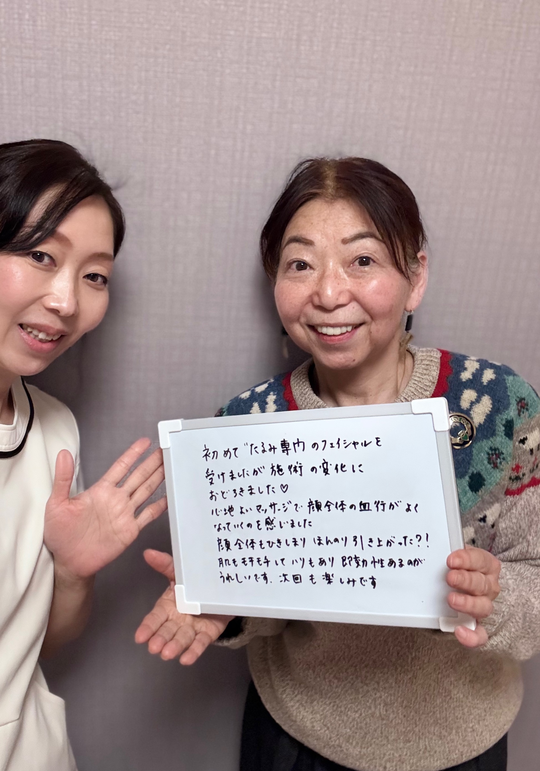 初めて"たるみ専門のフェイシャルを
受けましたが施術の変化に
おどろきました♡
心地よいマッサージで顔全体の血行がよく
なっていくのを感じました
顔全体もひきしまり ほんのり引き上がった?!
肌もモチモチしてハリもあり 即効性あるのが
うれしいです、次回も楽しみです